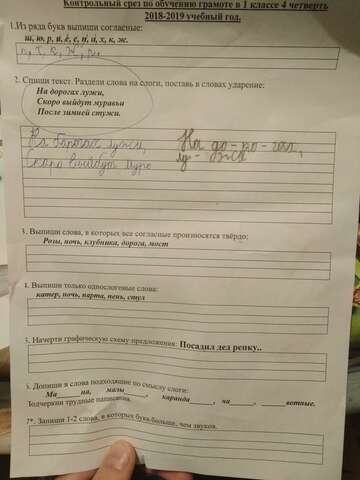 Контрольный срез по обучению грамоте в 1 классе 4 четверть
2018-2019 учебный год.
1.Из ряда букв выпиши согласные:
ш, ю, р, и, ё, с, п, и, х, к, ж.
2. Спиши текст. Раздели слова на слоги, поставь в словах ударение:
На дорогах лужи,
Скоро выйдут муравьи
После зимней стужи.
На дорогах лужи,
Скоро выйдут мура
На до-ро-гах,
лу-жи
3. Выпиши слова, в которых все согласные произносятся твёрдо:
Розы, ночь, клубника, дорога, мост
4. Выпиши только однослоговые слова:
катер, печь, парта, пень, стул
5. Начерти графическую схему предложения: Посадил дед репку..
6. Допиши в слова подходящие по смыслу слоги:
Ма______на, малы______, каранда______, ча______, ______вотные.
Подчеркни трудные написания.
7*. Запиши 1-2 слова, в которых букв больше, чем звуков.